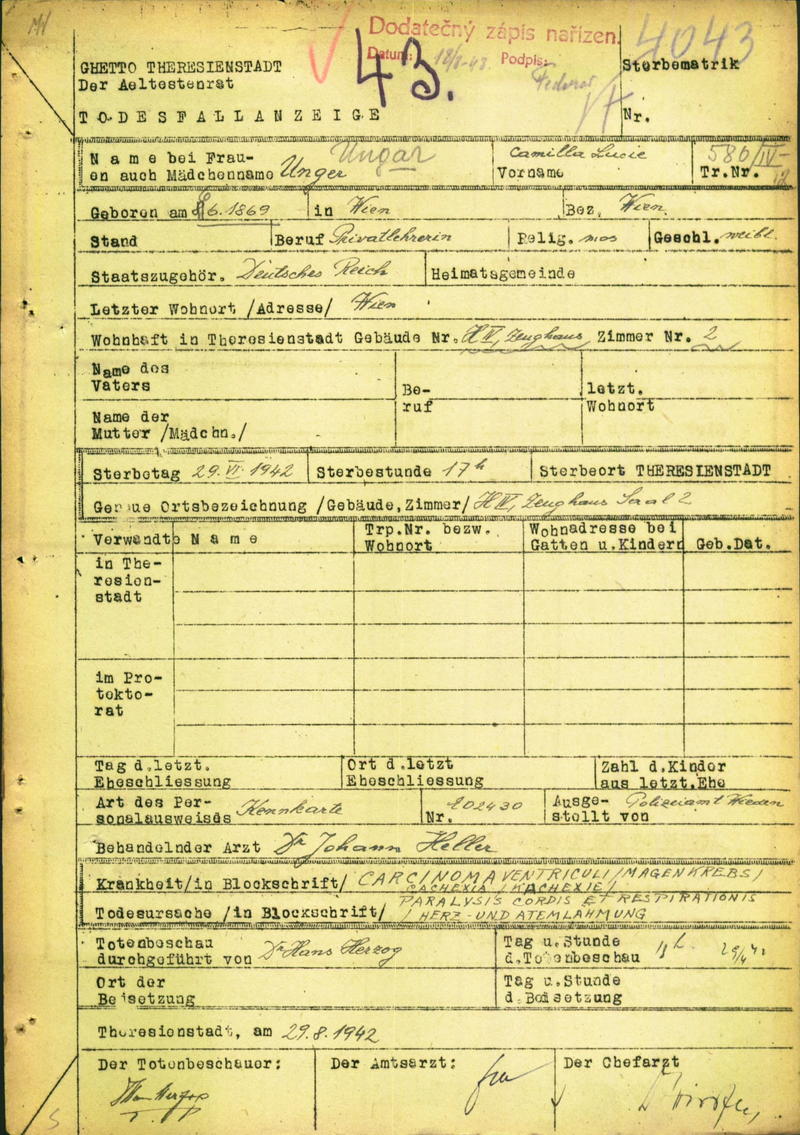 Dodatečný zápis nařízen.
Datum: 18/8-43 Podpis:
43.
4043
GHETTO THERESIENSTADT
Der Aeltestenrat
Sterbematrik
TODESFALLANZEIGE
Nr.
Name bei Frau- Ungar Camilla Lucie 580/IV-
en auch Mädchenname Unger Vorname Tr.Nr.
Geboren am 6.1869 in Wien Bez. Wien.
Stand Beruf Privatlehrerin Relig. mos Geschl. weibl.
Staatszugehör. Deutsches Reich Heimatsgemeinde
Letzter Wohnort /Adresse/ Wien
Wohnhaft in Theresienstadt Gebäude Nr. H IV, Zeughaus, Zimmer Nr. 2
Name des
Vaters
Be-
ruf
letzt.
Wohnort
Name der
Mutter /Mädchn./
Sterbetag 29.VI.1942 Sterbestunde 17h Sterbeort THERESIENSTADT
Genaue Ortsbezeichnung /Gebäude, Zimmer/ H IV, Zeughaus Saal 2
Verwandte Name
Trp.Nr. bezw.
Wohnort
Wohnadresse bei
Gatten u.Kindern
Geb.Dat.
in The-
resien-
stadt
im Pro-
tekto-
rat
Tag d.letzt.
Eheschliessung
Ort d.letzt
Eheschliessung
Zahl d.Kinder
aus letzt.Ehe
Art des Per-
sonalausweises Kennkarte
Nr. 202430
Ausge-
stellt von Polizeiamt Wieden
Behandelnder Arzt Dr Johann Heller
Krankheit/in Blockschrift/ CARCINOMA VENTRICULI /MAGENKREBS/
CACHEXIA /KACHEXIE/
Todesursache /in Blockschrift/ PARALYSIS CORDIS ET RESPIRATIONIS
/HERZ-UND ATEMLÄHMUNG
Totenbeschau
durchgeführt von Dr Hans Herzog
Tag u.Stunde
d.Totenbeschau
Ort der
Beisetzung
Tag u.Stunde
d.Beisetzung
Theresienstadt, am 29.8.1942
Der Totenbeschauer:
Der Amtsarzt:
Der Chefarzt